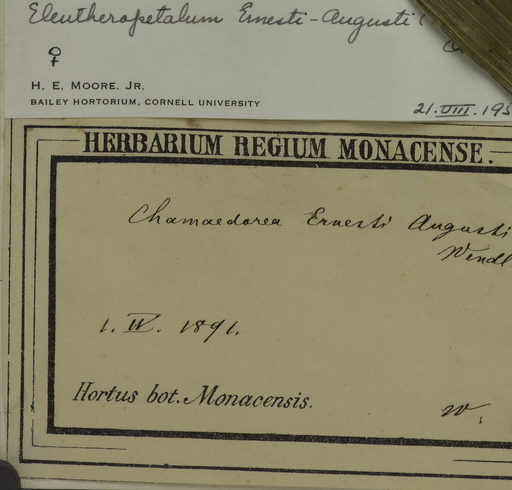 Eleutheropetalum Ernesti-Augusti (
♀
H. E. MOORE, JR.
BAILEY HORTORIUM, CORNELL UNIVERSITY
21.VIII.195
HERBARIUM REGIUM MONACENSE.
Chamaedorea Ernesti Augusti
Wendl
1. IV. 1891.
Hortus bot. Monacensis.
w.